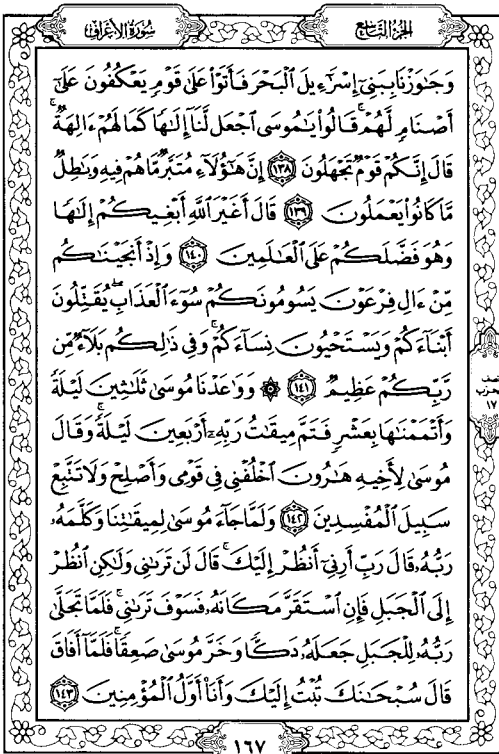 سُورَةُ الأَعۡرَافِ
الجُزءُ التَّاسِعُ
وَجَٰوَزۡنَا بِبَنِيٓ إِسۡرَٰٓءِيلَ ٱلۡبَحۡرَ فَأَتَوۡاْ عَلَىٰ قَوۡمٖ يَعۡكُفُونَ عَلَىٰٓ
أَصۡنَامٖ لَّهُمۡۚ قَالُواْ يَٰمُوسَى ٱجۡعَل لَّنَآ إِلَٰهٗا كَمَا لَهُمۡ ءَالِهَةٞۚ
قَالَ إِنَّكُمۡ قَوۡمٞ تَجۡهَلُونَ ١٣٨ إِنَّ هَٰٓؤُلَآءِ مُتَبَّرٞ مَّا هُمۡ فِيهِ وَبَٰطِلٞ
مَّا كَانُواْ يَعۡمَلُونَ ١٣٩ قَالَ أَغَيۡرَ ٱللَّهِ أَبۡغِيكُمۡ إِلَٰهٗا
وَهُوَ فَضَّلَكُمۡ عَلَى ٱلۡعَٰلَمِينَ ١٤٠ وَإِذۡ أَنجَيۡنَٰكُم
مِّنۡ ءَالِ فِرۡعَوۡنَ يَسُومُونَكُمۡ سُوٓءَ ٱلۡعَذَابِ يُقَتِّلُونَ
أَبۡنَآءَكُمۡ وَيَسۡتَحۡيُونَ نِسَآءَكُمۡۚ وَفِي ذَٰلِكُم بَلَآءٞ مِّن
رَّبِّكُمۡ عَظِيمٞ ١٤١ ۞ وَوَٰعَدۡنَا مُوسَىٰ ثَلَٰثِينَ لَيۡلَةٗ
وَأَتۡمَمۡنَٰهَا بِعَشۡرٖ فَتَمَّ مِيقَٰتُ رَبِّهِۦٓ أَرۡبَعِينَ لَيۡلَةٗۚ وَقَالَ
مُوسَىٰ لِأَخِيهِ هَٰرُونَ ٱخۡلُفۡنِي فِي قَوۡمِي وَأَصۡلِحۡ وَلَا تَتَّبِعۡ
سَبِيلَ ٱلۡمُفۡسِدِينَ ١٤٢ وَلَمَّا جَآءَ مُوسَىٰ لِمِيقَٰتِنَا وَكَلَّمَهُۥ
رَبُّهُۥ قَالَ رَبِّ أَرِنِيٓ أَنظُرۡ إِلَيۡكَۚ قَالَ لَن تَرَىٰنِي وَلَٰكِنِ ٱنظُرۡ
إِلَى ٱلۡجَبَلِ فَإِنِ ٱسۡتَقَرَّ مَكَانَهُۥ فَسَوۡفَ تَرَىٰنِيۚ فَلَمَّا تَجَلَّىٰ
رَبُّهُۥ لِلۡجَبَلِ جَعَلَهُۥ دَكّٗا وَخَرَّ مُوسَىٰ صَعِقٗاۚ فَلَمَّآ أَفَاقَ
قَالَ سُبۡحَٰنَكَ تُبۡتُ إِلَيۡكَ وَأَنَا۠ أَوَّلُ ٱلۡمُؤۡمِنِينَ ١٤٣
١٧
١٦٧